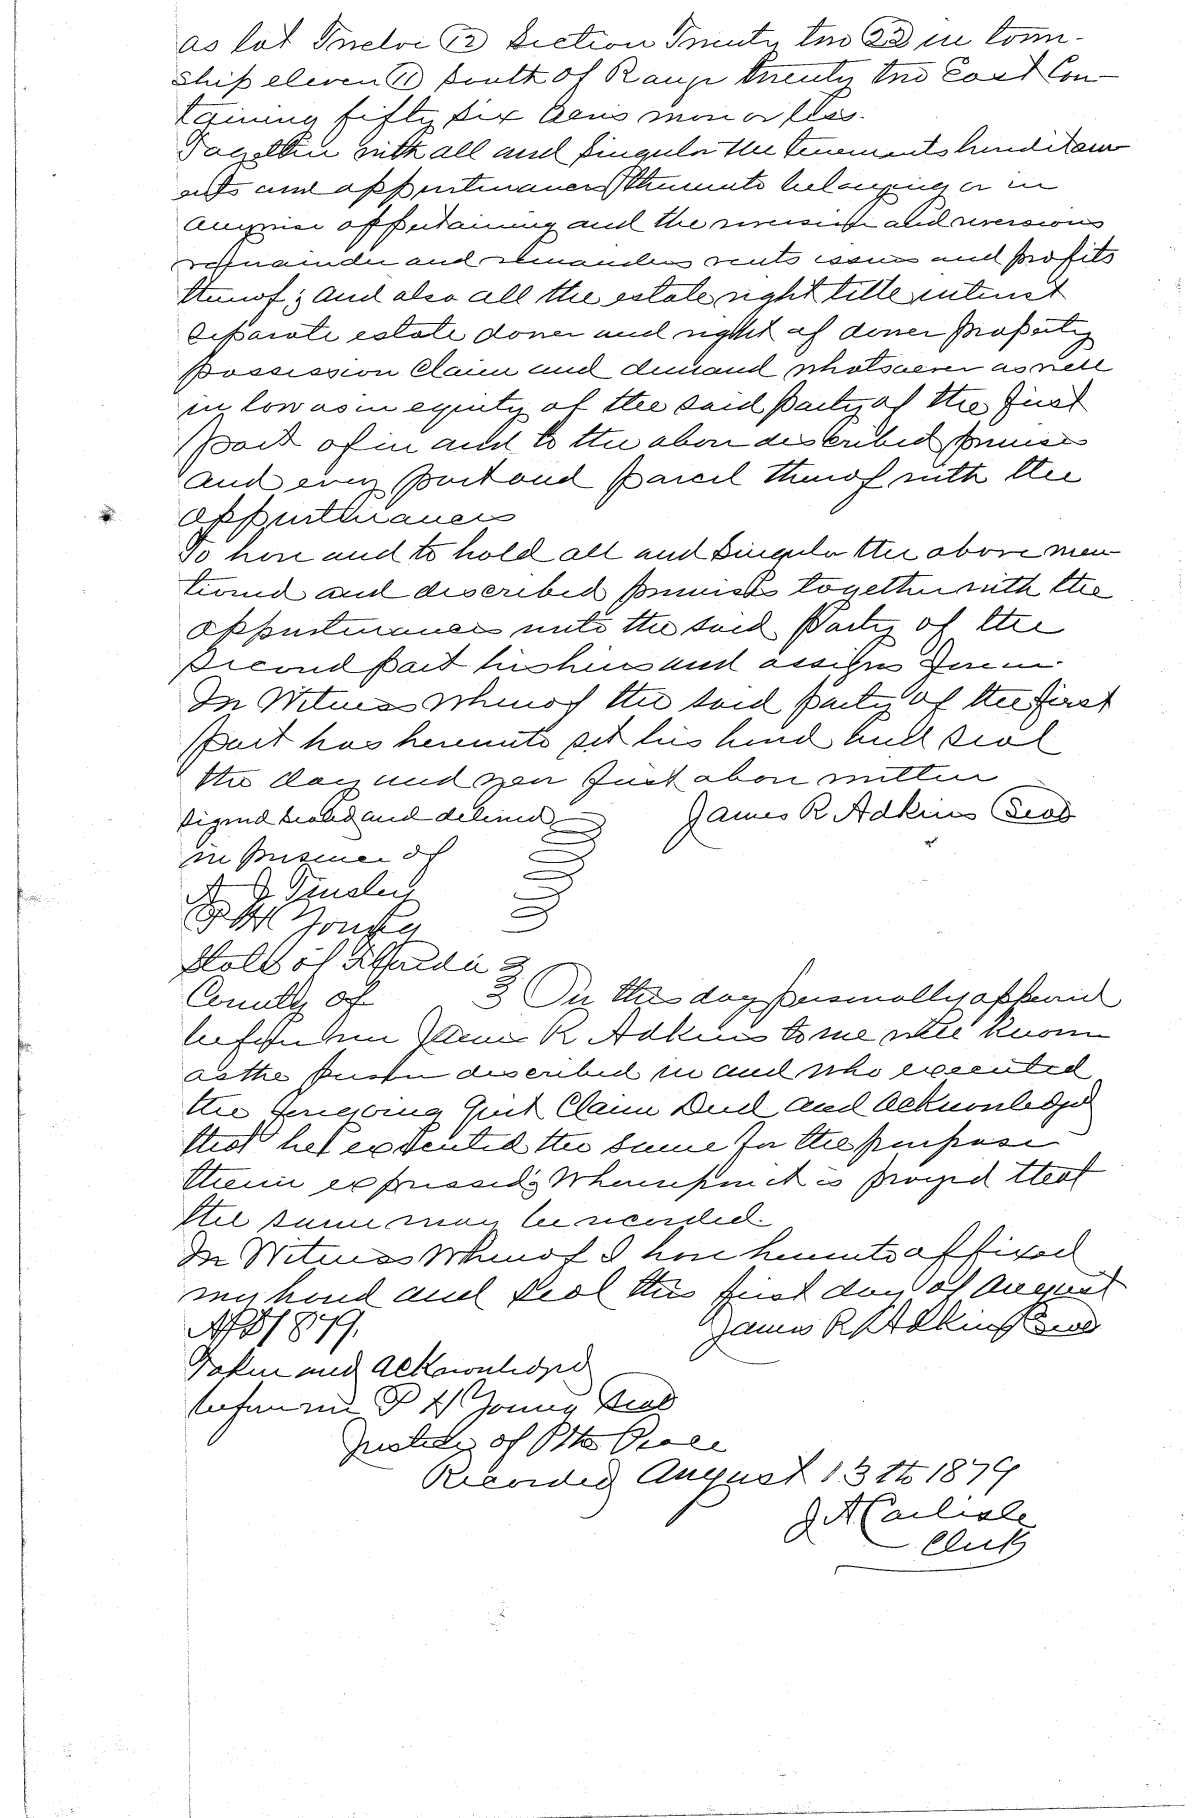 as lot Twelve (12) Section Twenty two (22) in town-
ship eleven (11) South of Range twenty two East Con-
taining fifty six acres more or less.
Together with all and Singular the tenements hereditam
ents and appurtenances thereunto belonging or in
anywise appertaining and the reversion and reversions
remainder and remainders rents issues and profits
thereof; and also all the estate right title interest
separate estate dower and right of dower property
possession Claim and demand whatsoever as well
in law as in equity of the said party of the first
part of in and to the above described premises
and every part and parcel thereof with the
appurtenances
To have and to hold all and Singular the above men
tioned and described premises together with the
appurtenances unto the said Party of the
second part his heirs and assigns forever.
In Witness Whereof the said party of the first
part has hereunto set his hand and seal
the day and year first above written
Signed sealed and delivered James R Adkins Seal
in presence of
A J Tinsley
P H Young
State of Florida
County of On this day personally appeared
before me James R Adkins to me well known
as the person described in and who executed
the foregoing Quit Claim Deed and acknowledged
that he executed the same for the purpose
therein expressed; Whereupon it is prayed that
the same may be recorded.
In Witness Whereof I have hereunto affixed
my hand and seal this first day of August
AD 1879. James R Adkins Seal
Taken and acknowledged
before me P H Young Seal
Justice of the Peace
Recorded August 13th 1879
J A Carlisle
Clerk